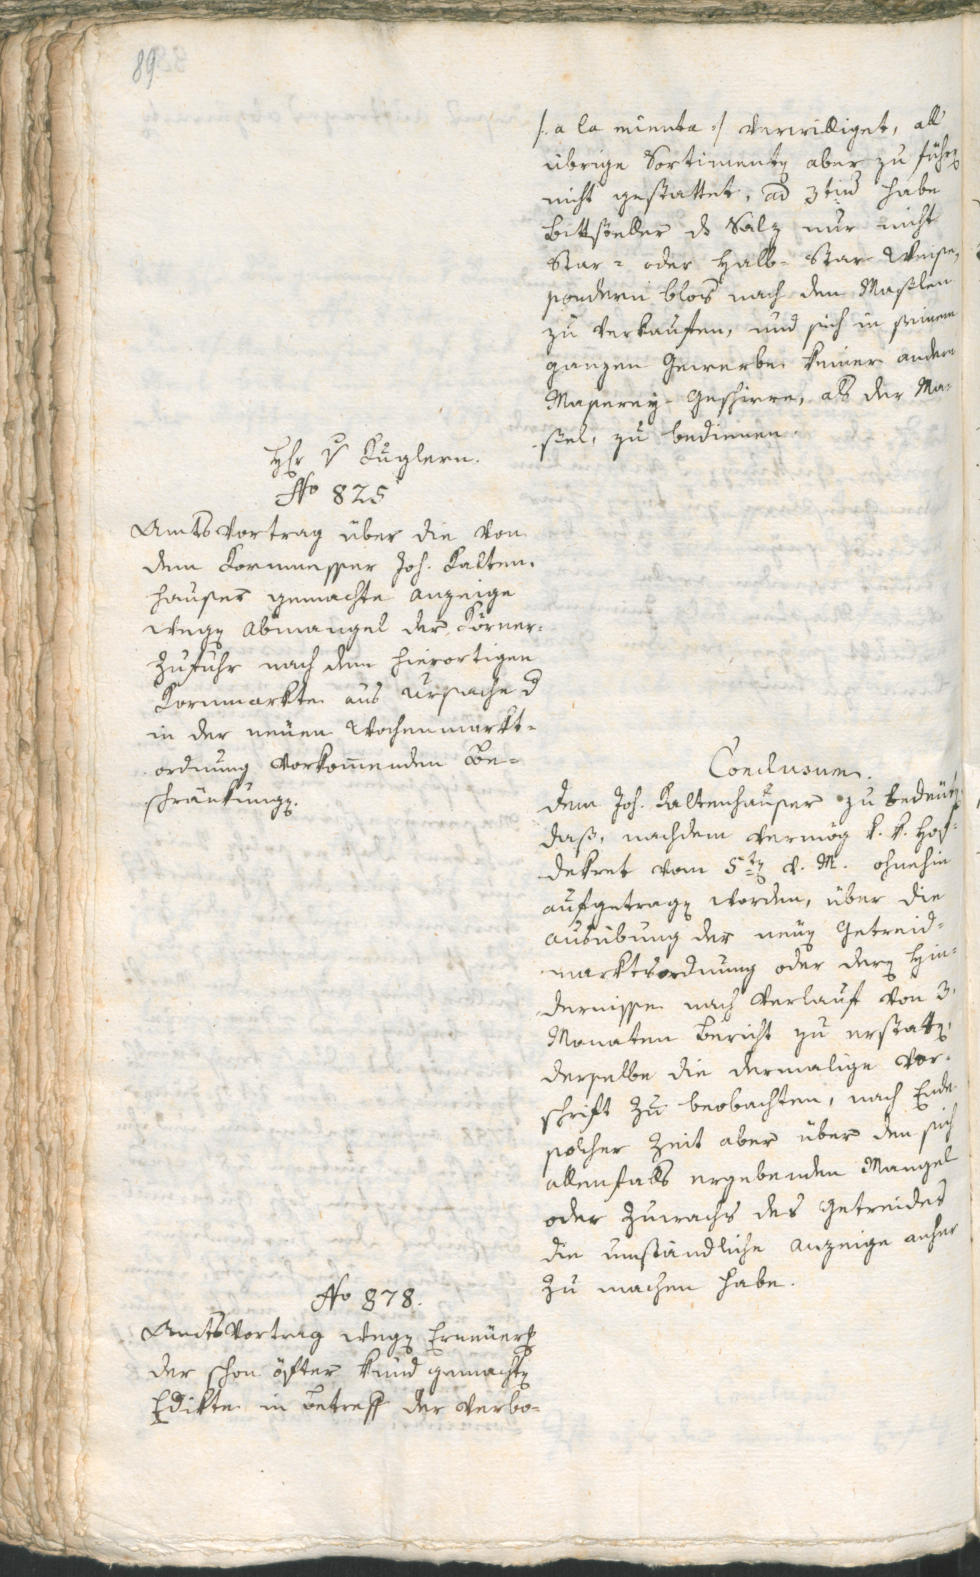 89
/: a la minuta :/ verwilliget, all
übrige Sortimente aber zu führen
nicht gestattet, ad 3tius habe
Bittsteller ds Salz nur nicht
Star- oder halb-Star Weise,
sondern blos nach den Masslen
zu verkaufen, und sich in seinem
ganzen Gewerbe keiner andern
Masserey-Geschirre, als der Ma-
ssel, zu bedienen.
Hr v Kuglern.
No 825
Amtsvortrag über die von
dem Kornmesser Joh. Kalten-
hauser gemachte Anzeige
wegen Abmangel der Körner-
Zufuhr nach dem hierortigen
Kornmarkte aus Ursache d
in der neuen Wochenmarkt-
ordnung vorkommenden Be-
schränkungen.
Conclusum.
dem Joh. Kaltenhauser zu bedeuten,
dass, nachdem vermög k. k. Hof-
dekret vom 5ten v. M. ohnehin
aufgetragen worden, über die
Ausübung der neuen Getreid-
marktsordnung oder deren Hin-
dernisse nach Verlauf von 3.
Monaten Bericht zu erstatten,
derselbe die dermalige Vor-
schrift zu beobachten, nach Ende
solcher Zeit aber über den sich
allenfalls ergebenden Mangel
oder Zuwachs des Getreides
die umständliche Anzeige anher
zu machen habe.
No 878.
Amtsvortrag wegen Erneuerung
der schon öfter kund gemachten
Edikte in Betreff der verbo-